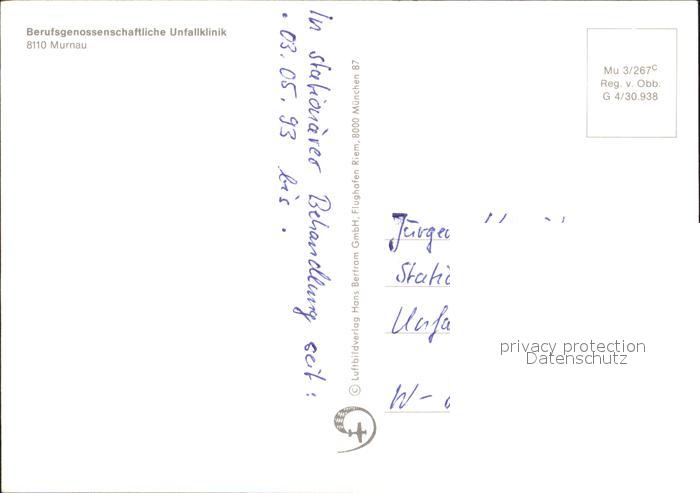 Berufsgenossenschaftliche Unfallklinik
8110 Murnau
In stationärer Behandlung seit:
. 03.05.93 bis .
© Luftbildverlag Hans Bertram GmbH, Flughafen Riem, 8000 München 87
Mu 3/267C
Reg. v. Obb.
G 4/30.938
Jürge
Statio
Unfa
W-
privacy protection
Datenschutz